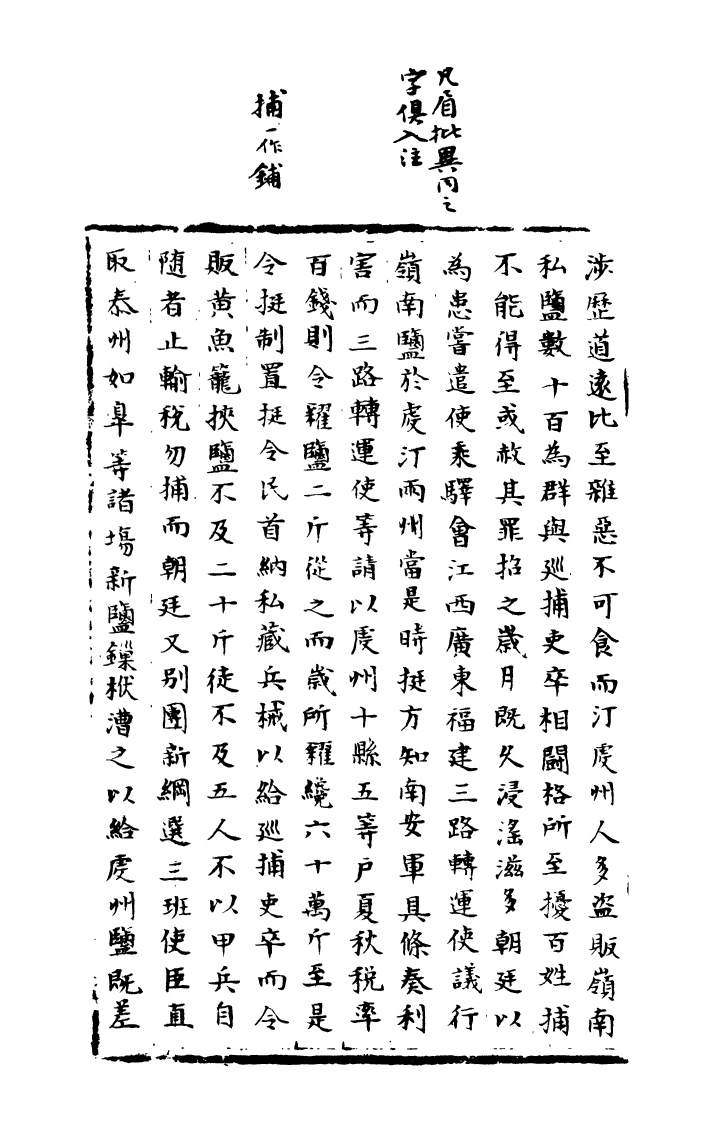 凡眉批異同之
字俱入注
捕一作鋪
涉歷道遠比至雜惡不可食而汀䖍州人多盜販嶺南
私鹽數十百為群與廵捕吏卒相鬬格所至擾百姓捕
不能得至或赦其罪招之歲月既久浸滛滋多朝廷以
為患嘗遣使乘驛會江西廣東福建三路轉運使議行
嶺南鹽於䖍汀兩州當是時挺方知南安軍具條奏利
害而三路轉運使等請以䖍州十縣五等戶夏秋稅率
百錢則令糴鹽二斤從之而歲所糴纔六十萬斤至是
令挺制置挺令民首納私藏兵械以給廵捕吏卒而令
販黃魚籠挾鹽不及二十斤徒不及五人不以甲兵自
隨者止輸稅勿捕而朝廷又別團新綱選三班使臣直
取泰州如臯等諸塲新鹽鏁栿漕之以給䖍州鹽既差